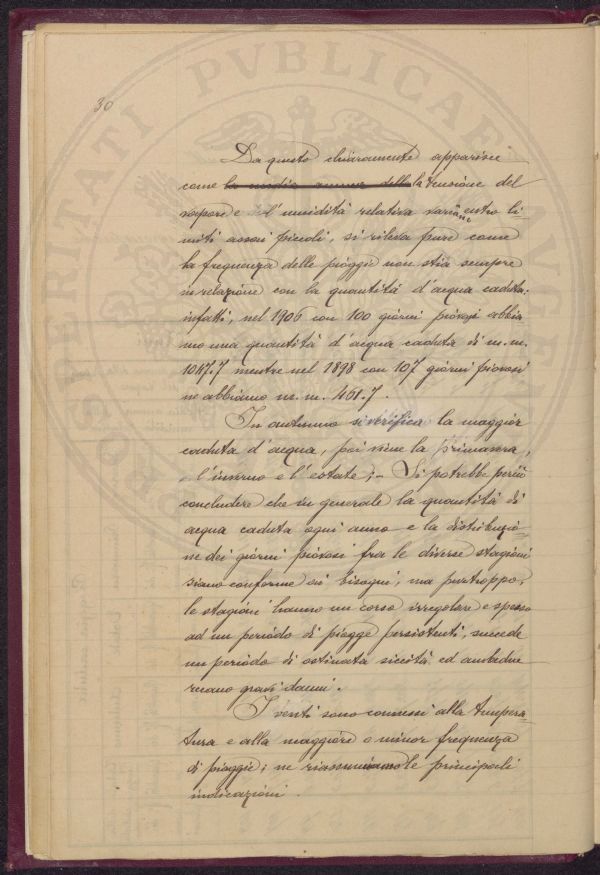 30
Da questo chiaramente apparisce
come la media annua della la tensione del
vapore e dell'umidità relativa variano entro li
miti assai piccoli, si rileva pure come
la frequenza delle pioggie non stia sempre
in relazione con la quantità d'acqua caduta:
infatti, nel 1906 con 100 giorni piovosi abbia-
mo una quantità d'acqua caduta di m.m.
1047.7 mentre nel 1898 con 107 giorni piovosi
ne abbiamo m.m. 461.7.
In autunno si verifica la maggior
caduta d'acqua, poi viene la primavera,
l'inverno e l'estate; – Si potrebbe perciò
concludere che in generale la quantità di
acqua caduta ogni anno e la distribuzio-
ne dei giorni piovosi fra le diverse stagioni
siano conforme ai bisogni, ma purtroppo,
le stagioni hanno un corso irregolare e spesso
ad un periodo di piogge persistenti, succede
un periodo di ostinata siccità ed ambedue
recano gravi danni.
I venti sono connessi alla tempera-
tura e alla maggiore o minor frequenza
di pioggie; ne riassumiamo le principali
indicazioni.
PVBLICAE